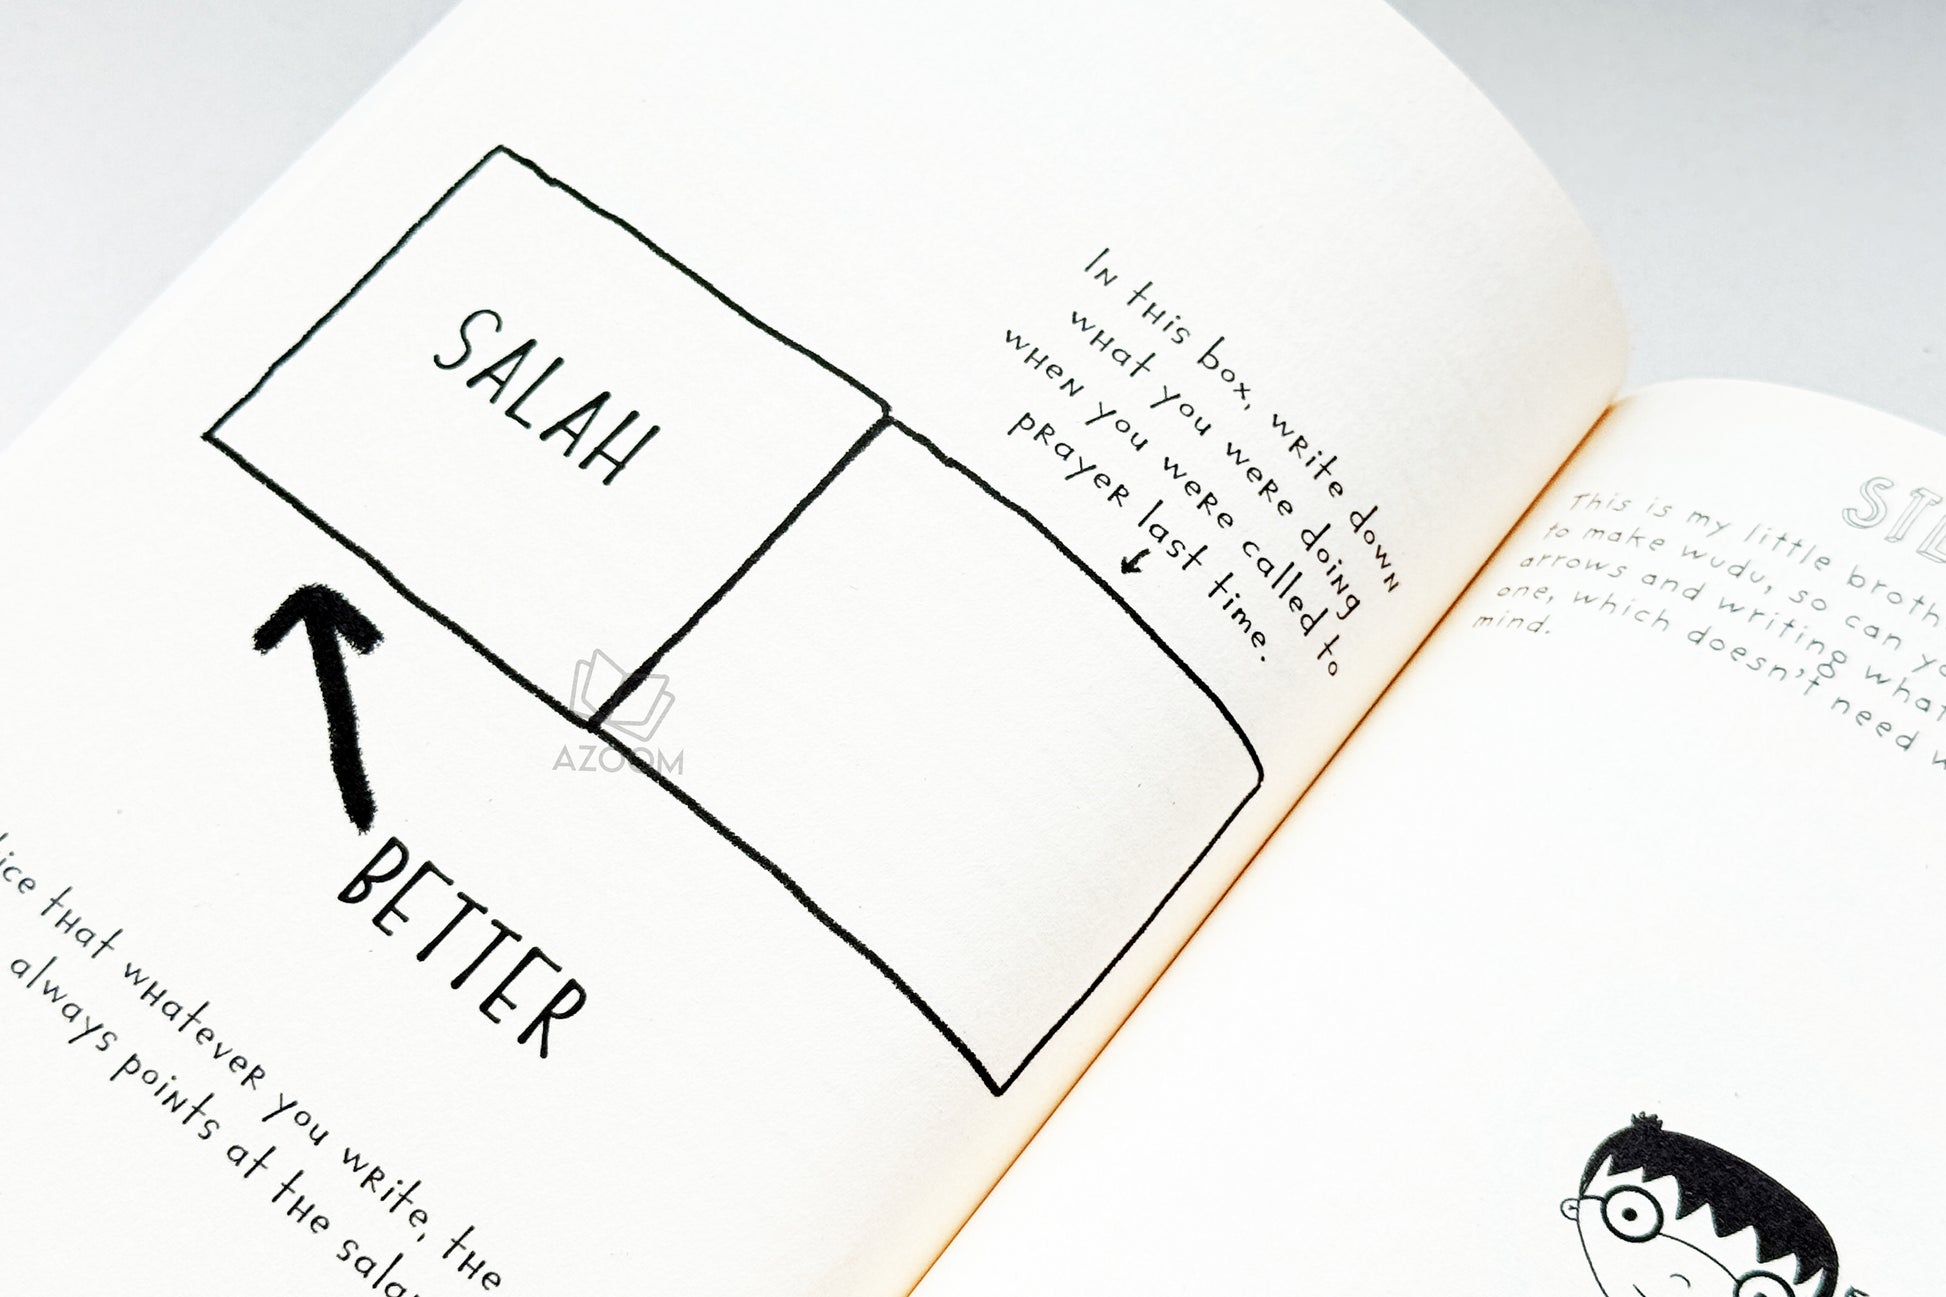 In this box, write down
what you were doing
when you were called to
prayer last time.
SALAH
BETTER
that whatever you write, the
always points at the
This is my little
to make wudu, so can
arrows and writing
one, which doesn't need
mind.
AZOOM